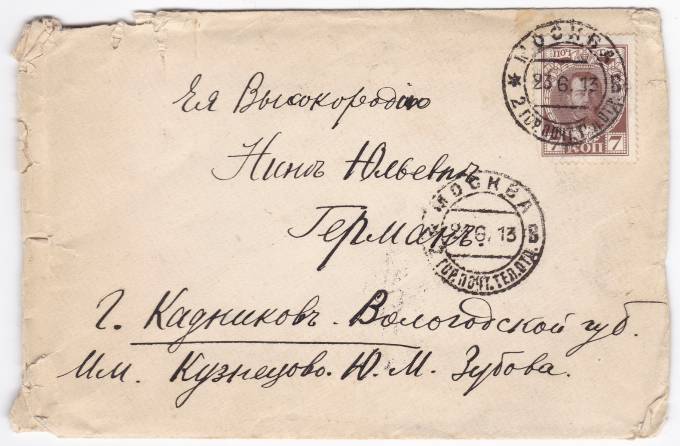 МОСКВА
23 6. 13
2 ГОР.ПОЧТ.ТЕЛ.ОТД.
ПОЧ
7 КОП 7
Ея Высокородію
Нинѣ Юльевнѣ
Германъ.
МОСКВА
6. 13
ГОР.ПОЧТ.ТЕЛ.ОТД.
г. Кадниковъ. Вологодской губ.
Им. Кузнецово. Ю. М. Зубова.